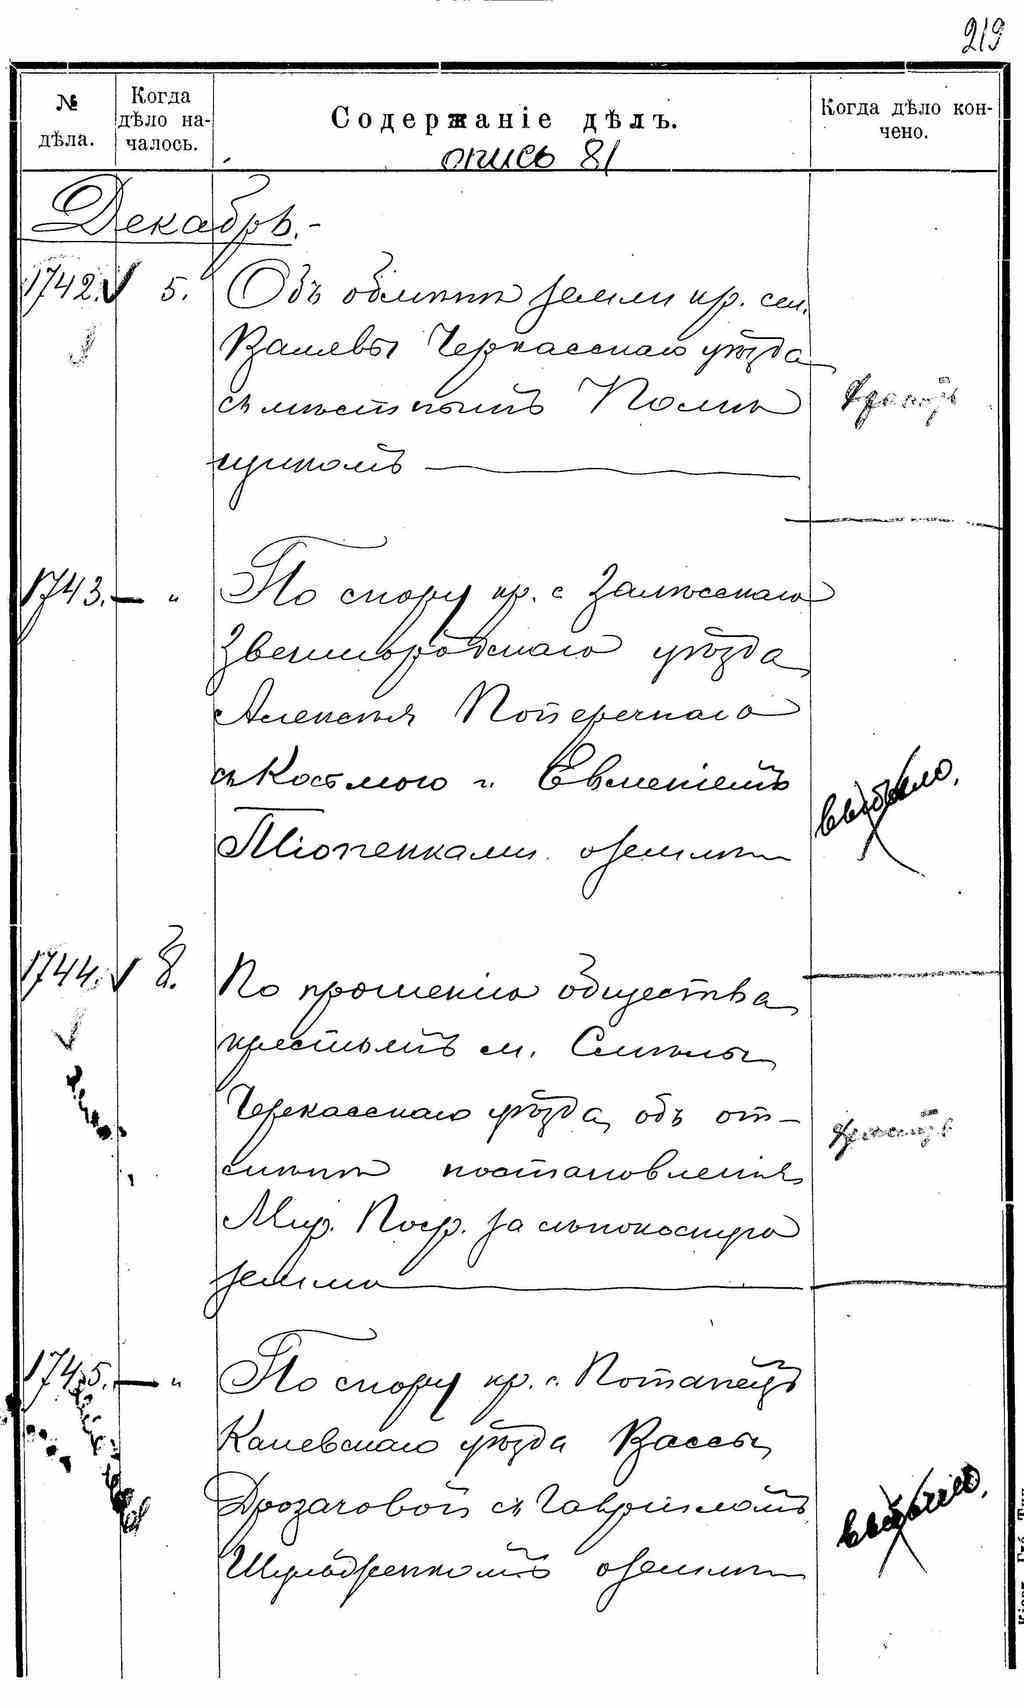 219
№ дѣла.
Когда дѣло началось.
Содержаніе дѣлъ.
Когда дѣло кончено.
опись 81
Декабрь.-
1742. 5. Объ обмѣнѣ земли кр. сел.
Валявы Черкасскаго уѣзда
съ мѣстнымъ Помѣ
щикомъ
1743. — " По спору кр. с. Залѣсскаго
Звенигородскаго уѣзда
Алексѣя Поперечнаго
съ Костмою и Евменіемъ
о землѣ
1744. 8. По прошенію общества
крестьянъ м. Смѣлы
Черкасскаго уѣзда, объ от-
мѣнѣ постановленія
Мир. Поср. за сѣнокосную
землю
1745. — " По спору кр. с. Потапецъ
Каневскаго уѣзда Вассы
Дрозачовой съ Гавріиломъ
о землѣ
выбыло.